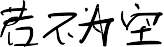 若不为空